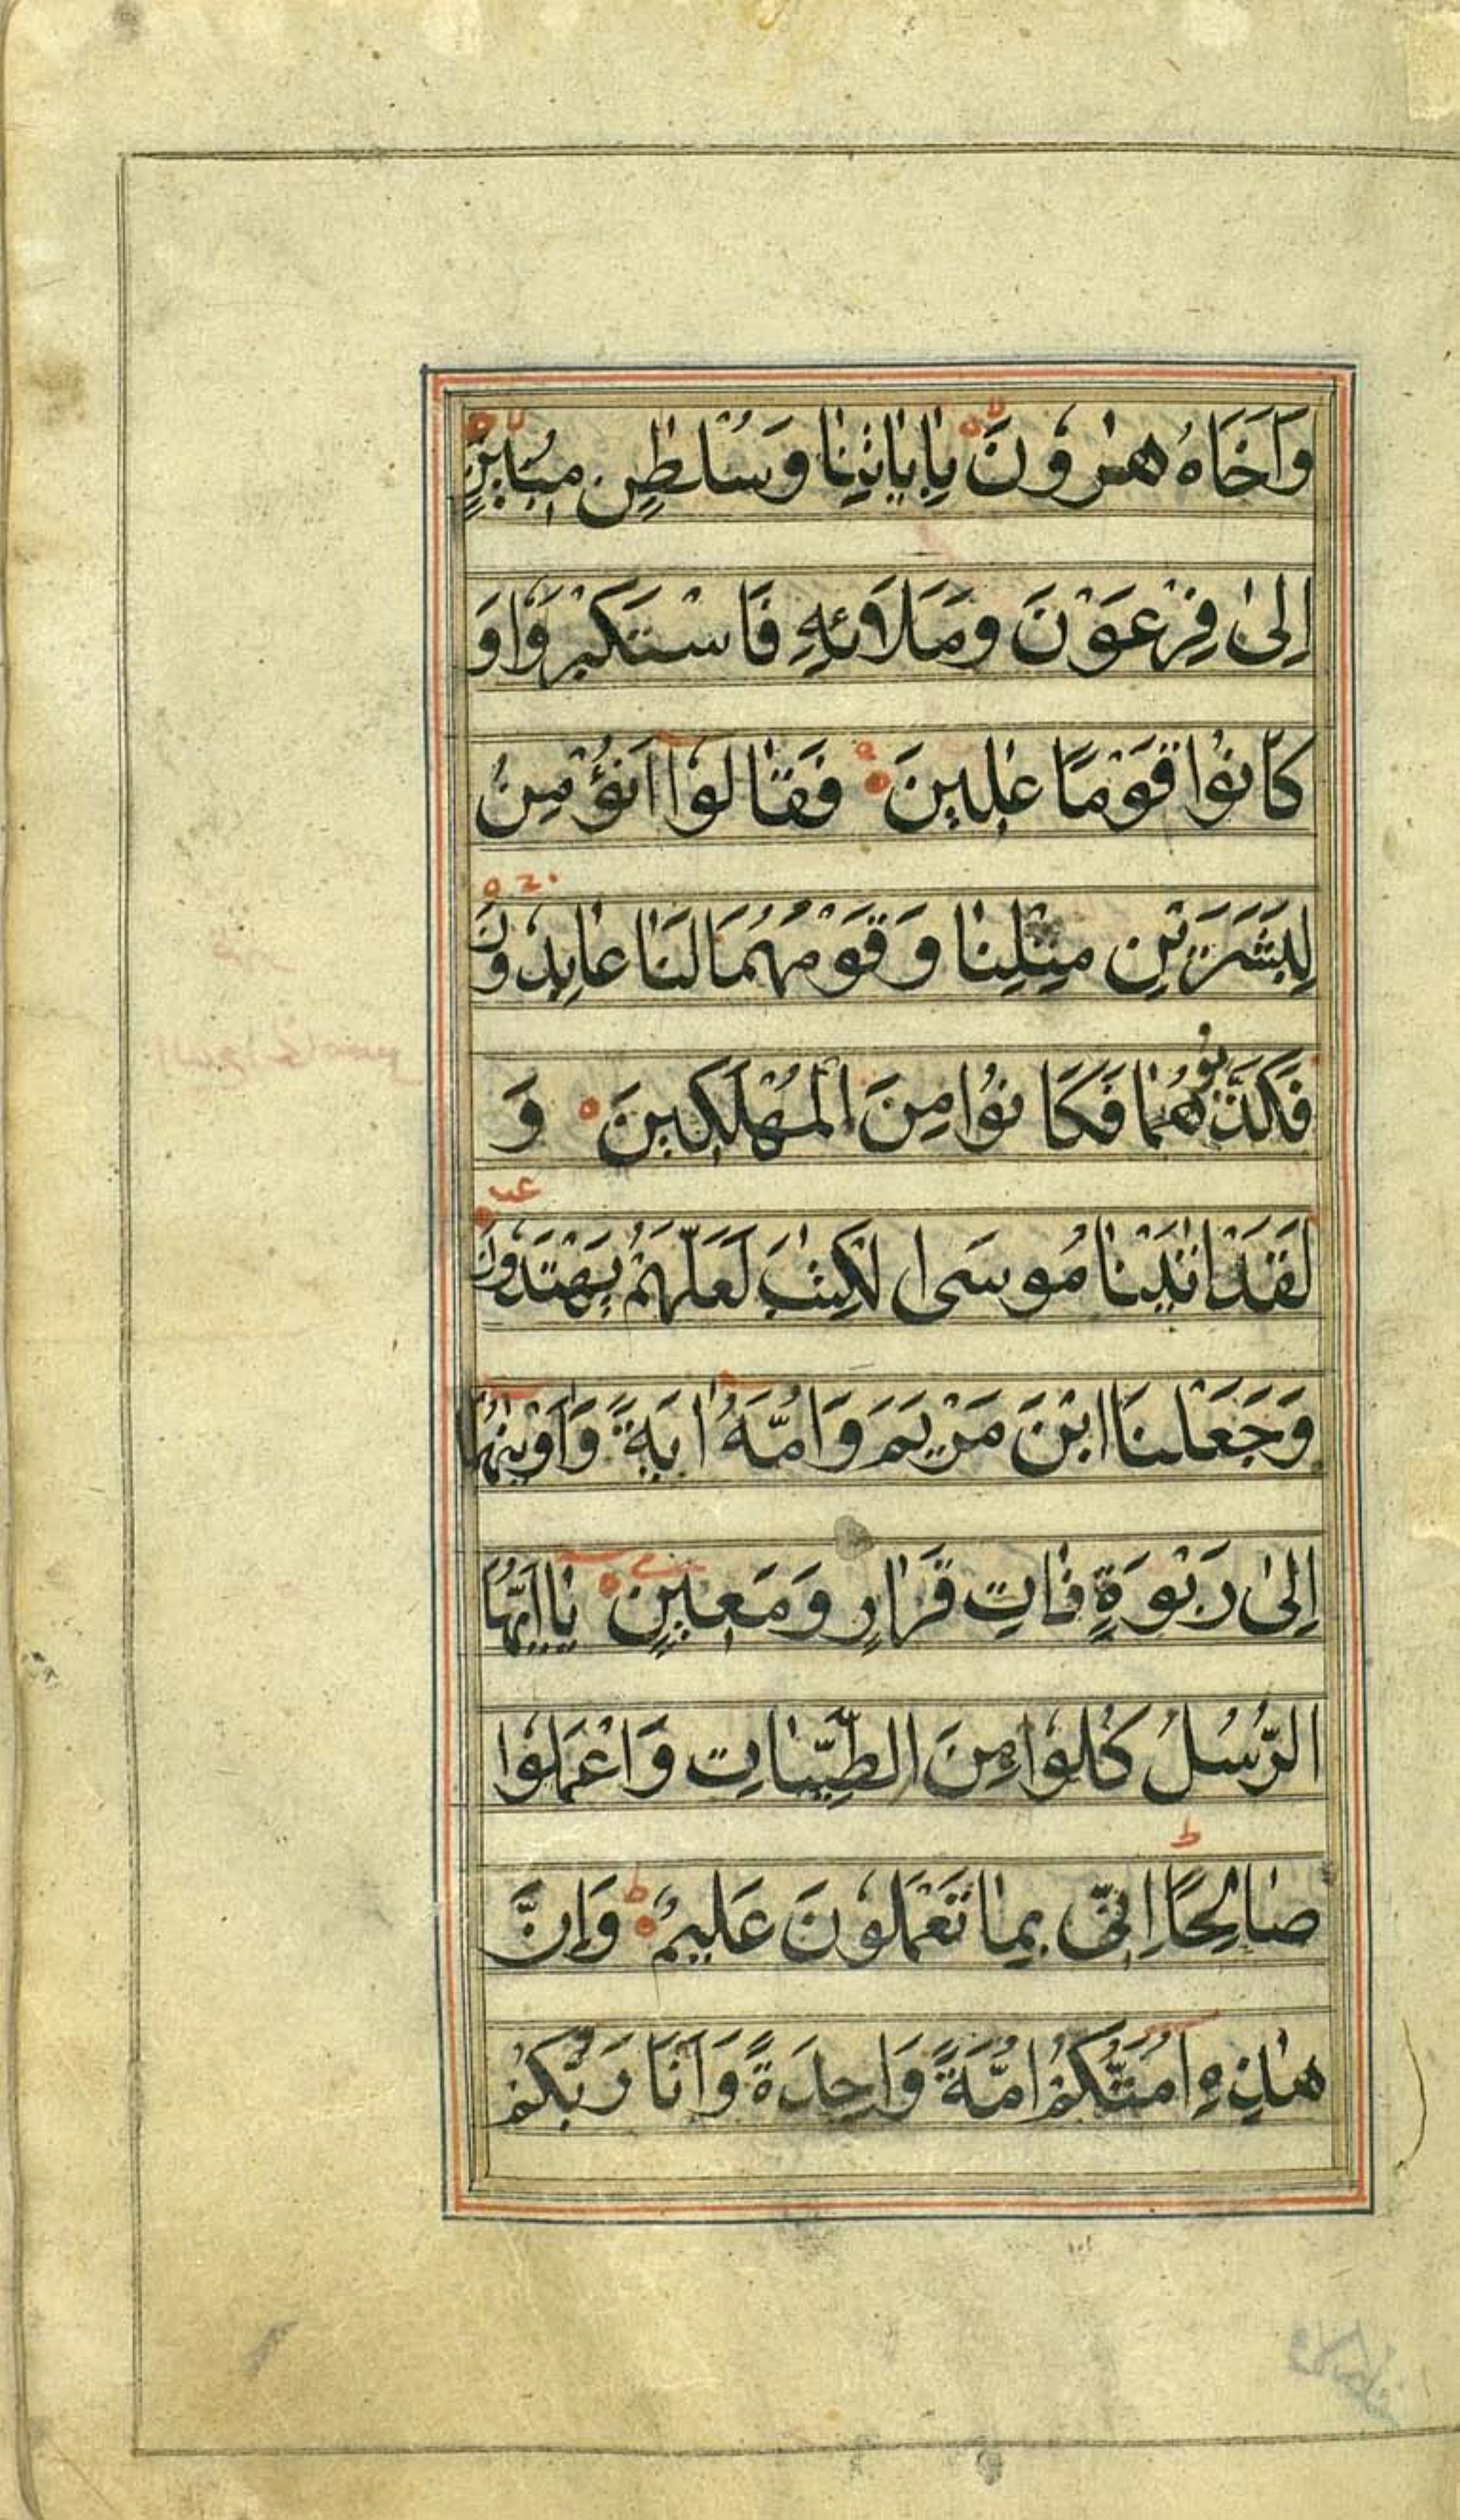 وَاَخَاهُ هٰرُونَ بِاٰيَاتِنٰا وَسُلْطٰنٍ مُبٖينٍ
اِلىٰ فِرْعَوْنَ وَمَلَائِهِ فَاسْتَكْبَرُوا وَ
كَانُوا قَوْمًا عٰلٖينَ فَقٰالُوا اَنُؤْمِنُ
لِبَشَرَيْنِ مِثْلِنٰا وَقَوْمُهُمَا لَنَا عٰابِدُونَ
فَكَذَّبُوهُمٰا فَكَانُوا مِنَ الْمُهْلَكٖينَ وَ
لَقَدْ اٰتَيْنٰا مُوسَى الْكِتٰبَ لَعَلَّهُمْ يَهْتَدُونَ
وَجَعَلْنَا ابْنَ مَرْيَمَ وَاُمَّهُ اٰيَةً وَاٰوَيْنٰهُمٰا
اِلىٰ رَبْوَةٍ ذٰاتِ قَرٰارٍ وَمَعٖينٍ يٰا اَيُّهَا
الرُّسُلُ كُلُوا مِنَ الطَّيِّبٰاتِ وَاعْمَلُوا
صٰالِحًا اِنّٖى بِمٰا تَعْمَلُونَ عَلٖيمٌ وَاِنَّ
هٰذِهِ اُمَّتُكُمْ اُمَّةً وَاحِدَةً وَاَنَا رَبُّكُمْ